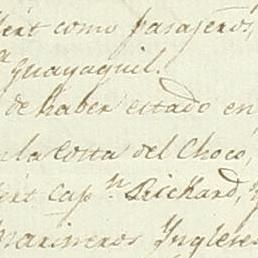 como pasajeros,
Guayaquil.
de haber estado en
la Costa del Choco,
Cap.n Prichard,
marineros Ingleses